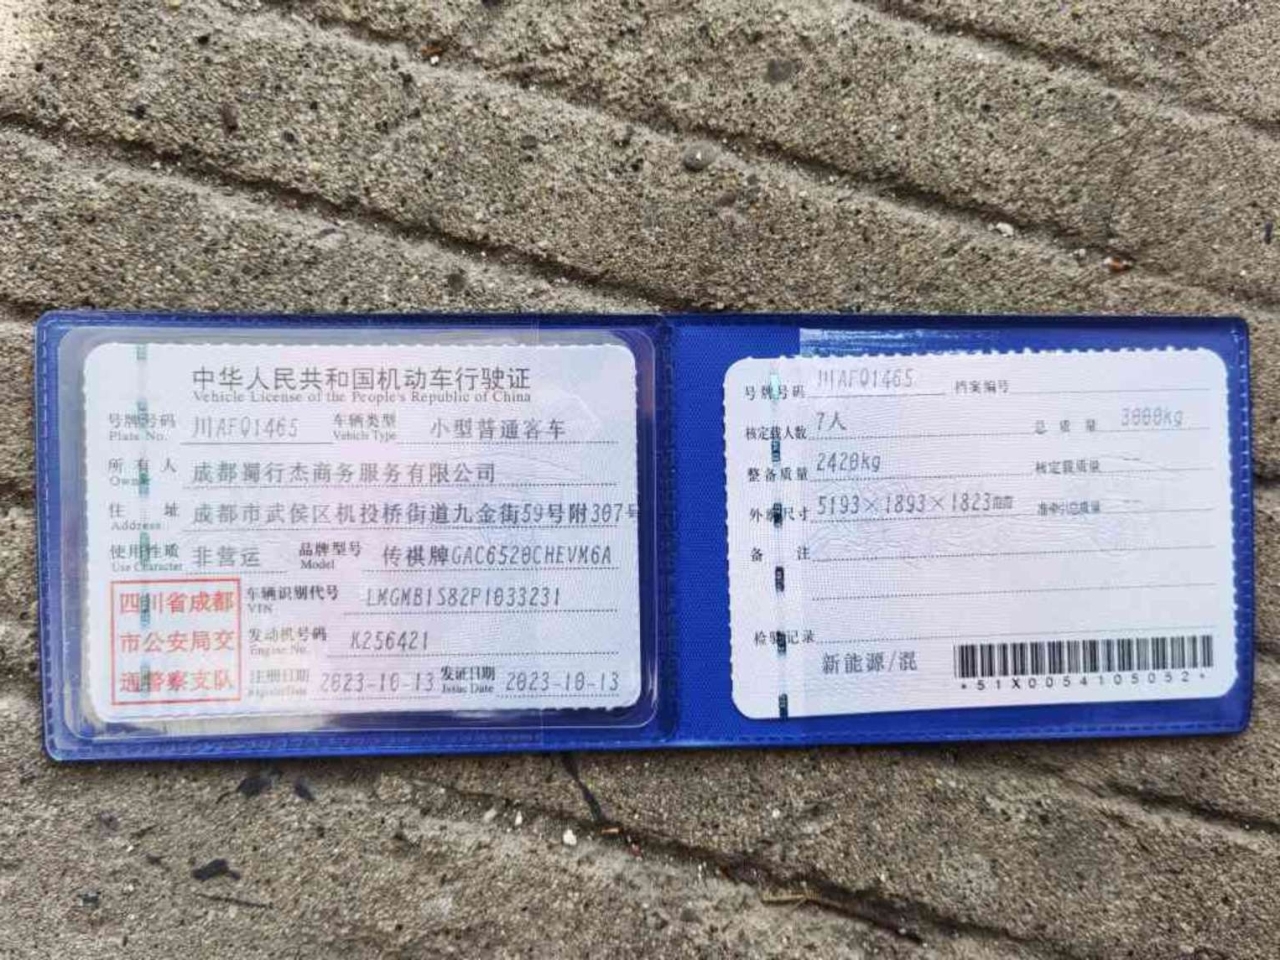 中华人民共和国机动车行驶证
Vehicle License of the People's Republic of China
号牌号码 川AFQ1465 车辆类型 小型普通客车
Plate No. Vehicle Type
所有人 成都蜀行杰商务服务有限公司
Owner
住址 成都市武侯区机投桥街道九金街59号附307号
Address
使用性质 非营运 品牌型号 传祺牌GAC6520CHEVM6A
Use Character Model
四川省成都
市公安局交
通警察支队
车辆识别代号 LMGMB1S82P1033231
VIN
发动机号码 K256421
Engine No.
注册日期 2023-10-13 发证日期 2023-10-13
Register Date Issue Date
号牌号码 川AFQ1465 档案编号
核定载人数 7人 总质量 3000kg
整备质量 2420kg 核定载质量
外廓尺寸 5193×1893×1823mm 准牵引总质量
备注
检验记录
新能源/混
*51X0054105052*